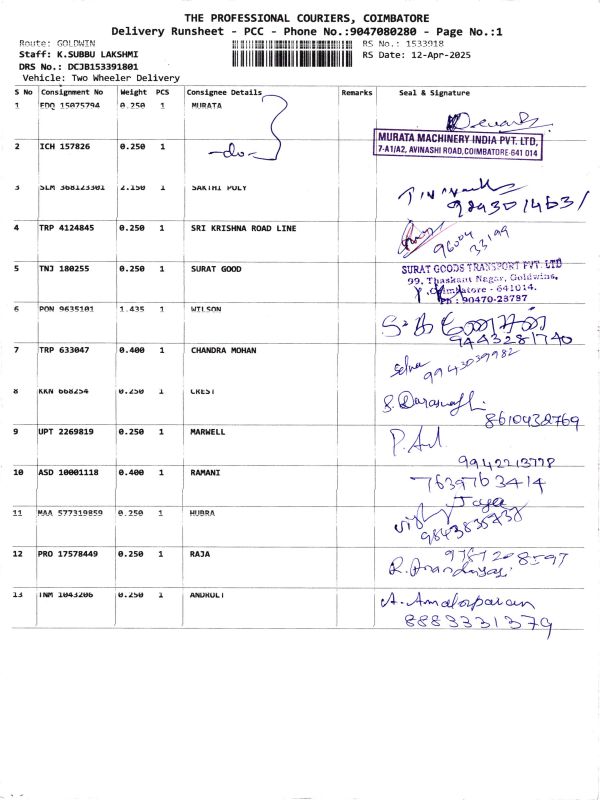 THE PROFESSIONAL COURIERS, COIMBATORE
Delivery Runsheet - PCC - Phone No.:9047080280 - Page No.:1
Route: GOLDWIN RS No.: 1533918
Staff: K.SUBBU LAKSHMI RS Date: 12-Apr-2025
DRS No.: DCJB153391801
Vehicle: Two Wheeler Delivery
S No Consignment No Weight PCS Consignee Details Remarks Seal & Signature
1 EDQ 15075794 0.250 1 MURATA
MURATA MACHINERY INDIA PVT. LTD,
7-A1/A2, AVINASHI ROAD, COIMBATORE-641 014
2 ICH 157826 0.250 1 -do-
3 SLM 368123301 2.150 1 SAKTHI POLY
4 TRP 4124845 0.250 1 SRI KRISHNA ROAD LINE
96004
33199
5 TNJ 180255 0.250 1 SURAT GOOD
SURAT GOODS TRANSPORT PVT. LTD
99, Thaskant Nagar, Goldwins,
Coimbatore - 641014.
Ph : 90470-28787
6 PON 9635101 1.435 1 WILSON
9443281740
7 TRP 633047 0.400 1 CHANDRA MOHAN
9943039982
8 KKN 668254 0.250 1 CREST
8610432769
9 UPT 2269819 0.250 1 MARWELL
9942213778
10 ASD 10001118 0.400 1 RAMANI
7639763414
Jaya
11 MAA 577319859 0.250 1 HUBRA
12 PRO 17578449 0.250 1 RAJA
13 TNM 1043206 0.250 1 ANDROLT
A. Amalorparan
8883331379